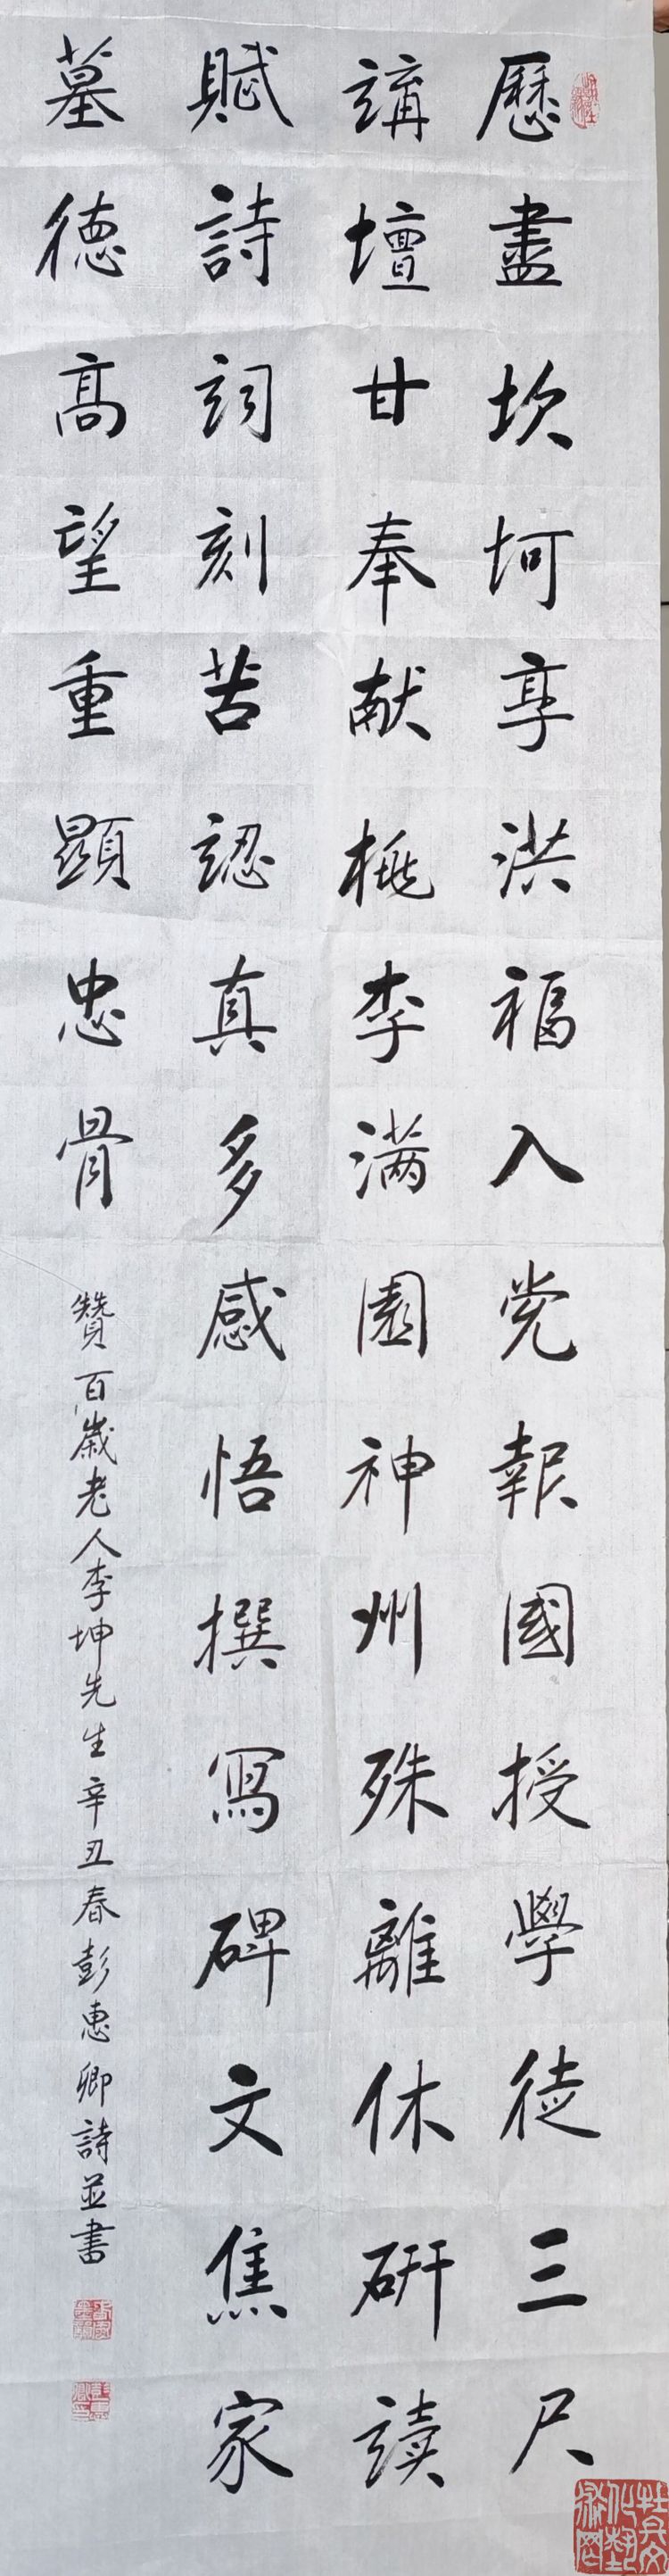 歷盡坎坷享洪福入党報國授學徒三尺
講壇甘奉献桃李满園神州殊離休研讀
賦詩詞刻苦認真多感悟撰寫碑文焦家
墓德高望重顯忠骨
贊百歲老人李坤先生辛丑春彭惠卿詩並書